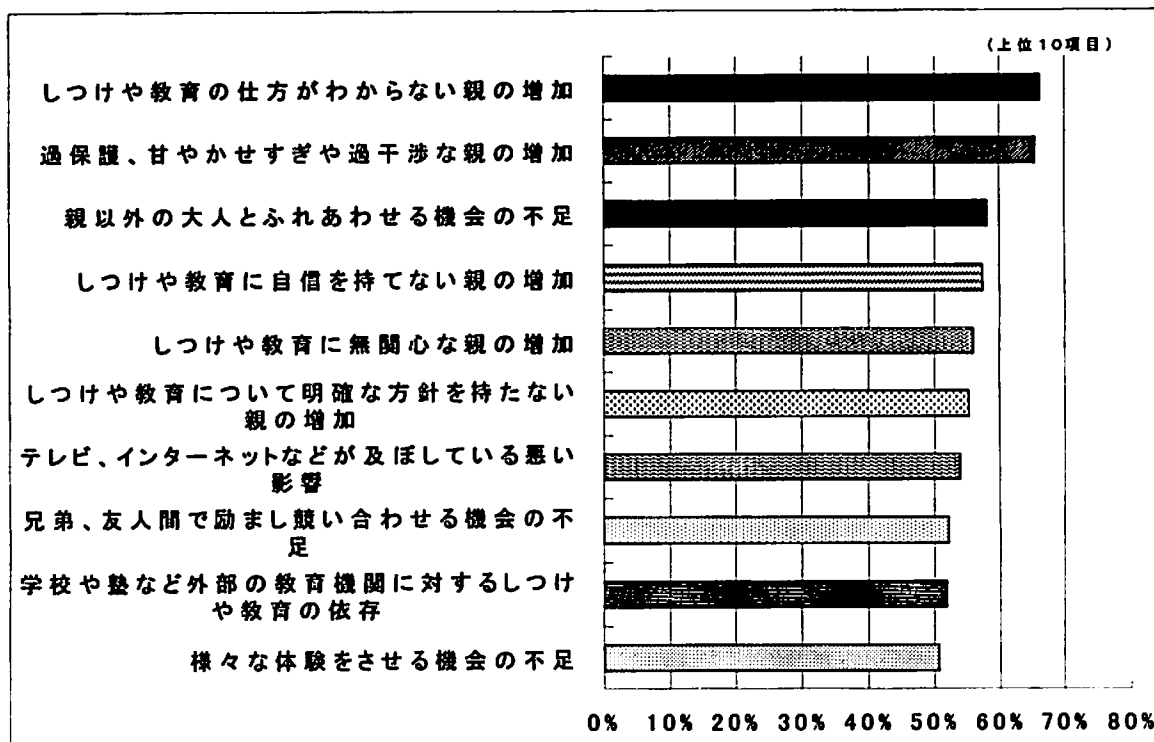 (上位10項目)
しつけや教育の仕方がわからない親の増加
過保護、甘やかせすぎや過干渉な親の増加
親以外の大人とふれあわせる機会の不足
しつけや教育に自信を持てない親の増加
しつけや教育に無関心な親の増加
しつけや教育について明確な方針を持たない
親の増加
テレビ、インターネットなどが及ぼしている悪い
影響
兄弟、友人間で励まし競い合わせる機会の不
足
学校や塾など外部の教育機関に対するしつけ
や教育の依存
様々な体験をさせる機会の不足
0% 10% 20% 30% 40% 50% 60% 70% 80%